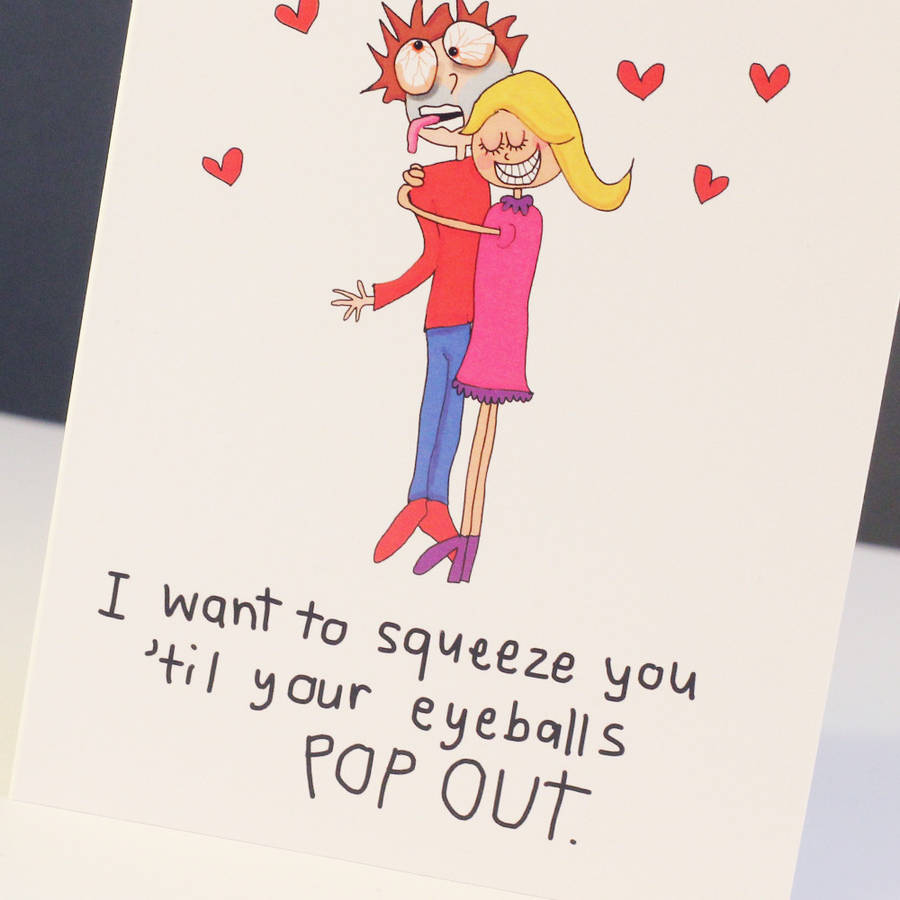 I want to squeeze you
'til your eyeballs
POP OUT.